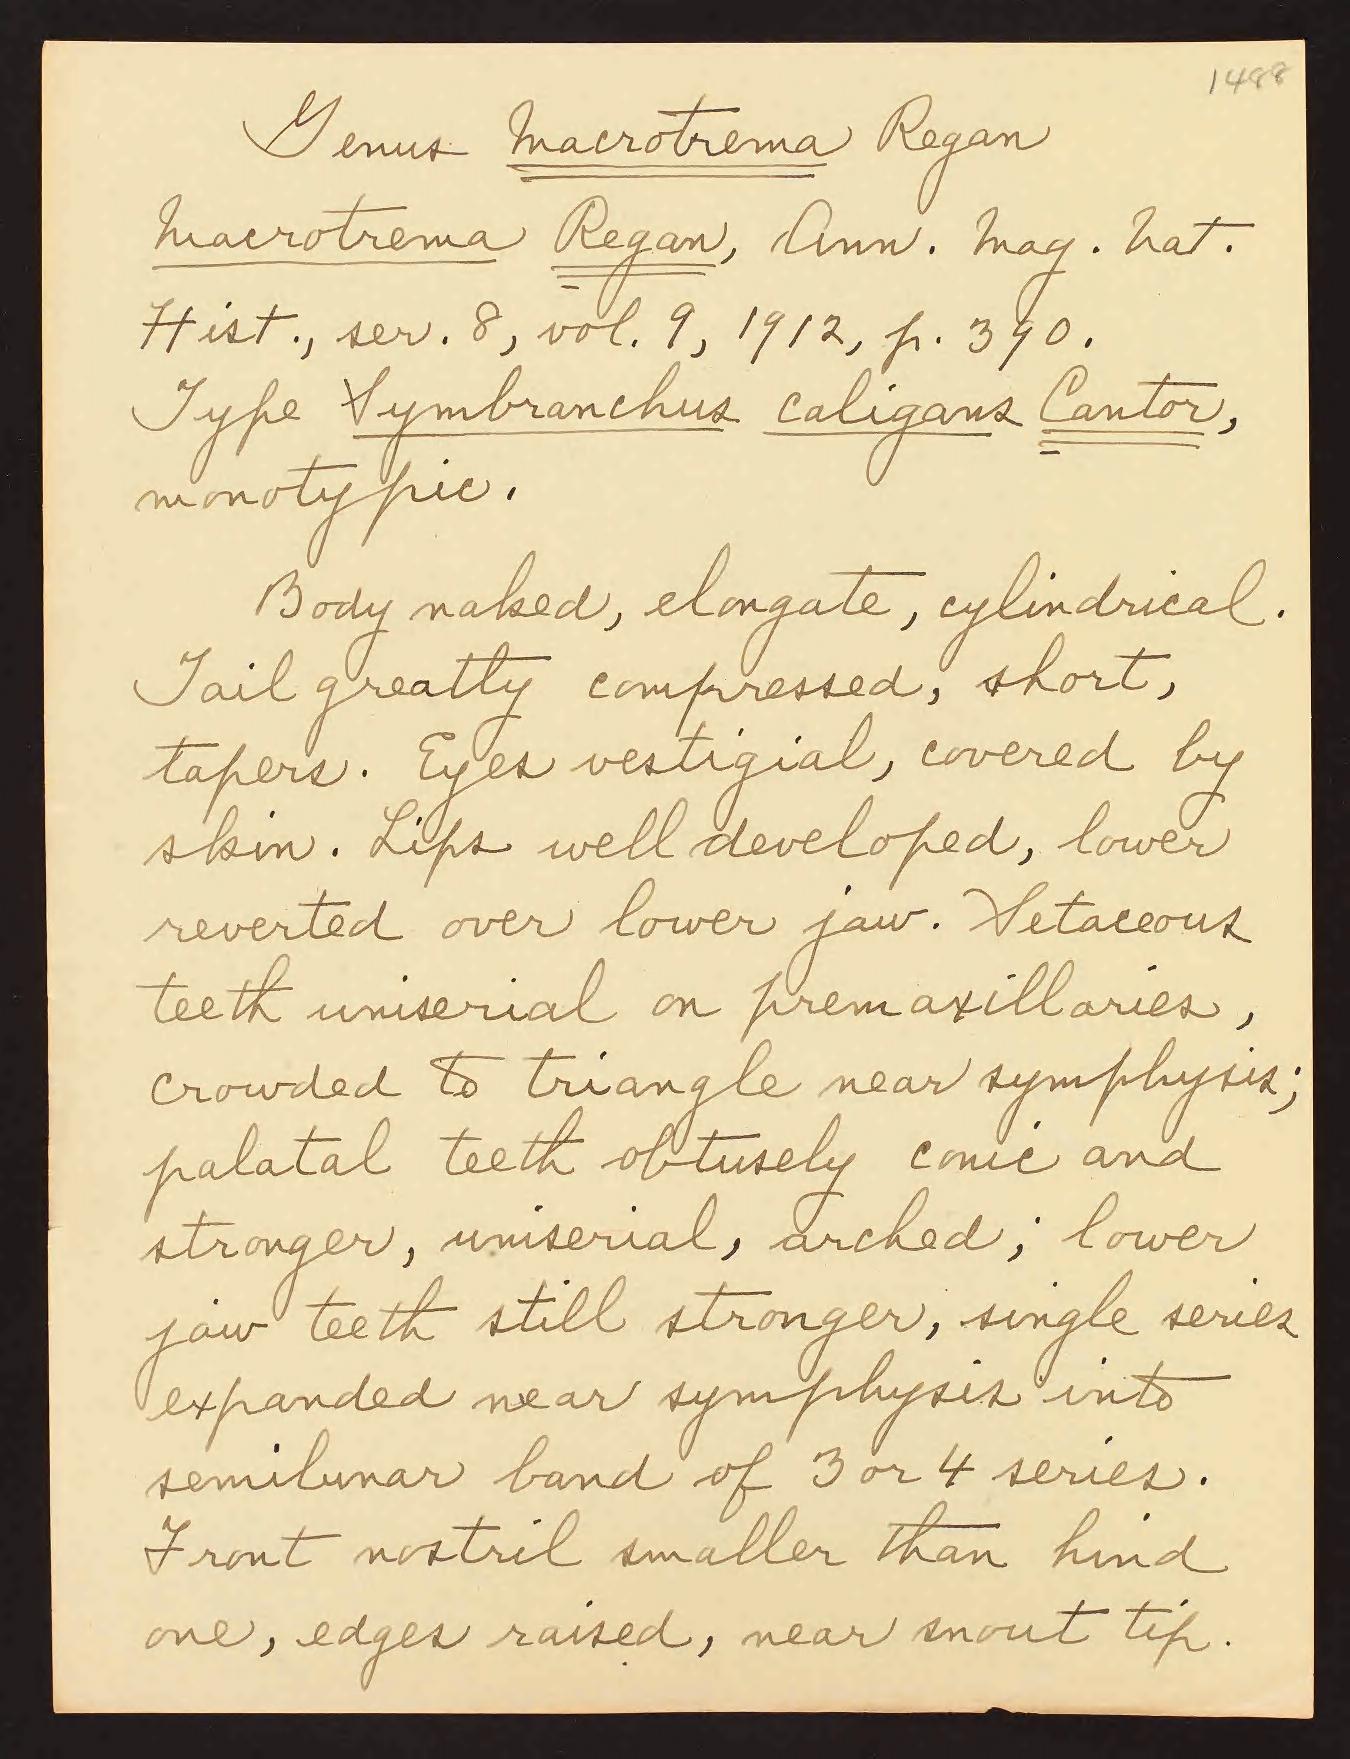 1488
Genus Macrotrema Regan
Macrotrema Regan, Ann. Mag. Nat.
Hist., ser. 8, vol. 9, 1912, p. 390.
Type Symbranchus caligans Cantor,
monotypic.
Body naked, elongate, cylindrical.
Tail greatly compressed, short,
tapers. Eyes vestigial, covered by
skin. Lips well developed, lower
reverted over lower jaw. Setaceous
teeth uniserial on premaxillaries,
crowded to triangle near symphysis;
palatal teeth obtusely conic and
stronger, uniserial, arched; lower
jaw teeth still stronger, single series
expanded near symphysis into
semilunar band of 3 or 4 series.
Front nostril smaller than hind
one, edges raised, near snout tip.